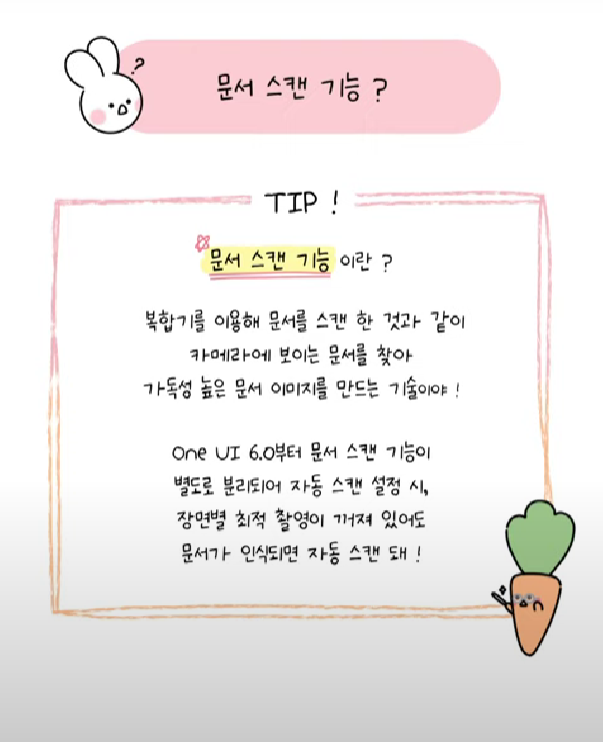 ?
문서 스캔 기능 ?
TIP !
문서 스캔 기능 이란 ?
복합기를 이용해 문서를 스캔 한 것과 같이
카메라에 보이는 문서를 찾아
가독성 높은 문서 이미지를 만드는 기술이야 !
One UI 6.0부터 문서 스캔 기능이
별도로 분리되어 자동 스캔 설정 시,
장면별 최적 촬영이 꺼져 있어도
문서가 인식되면 자동 스캔 돼 !